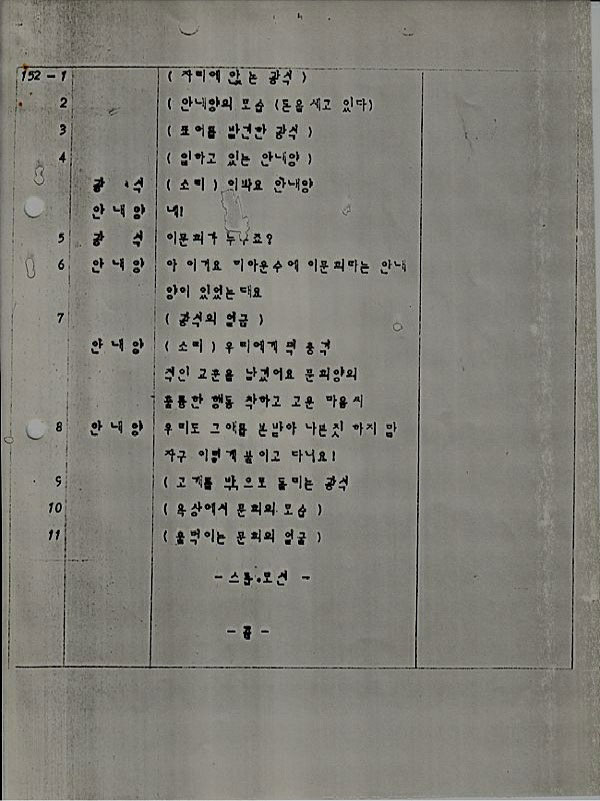 152-1 ( 자리에 앉는 광석 )
2 ( 안내양의 모습 (돈을 세고 있다)
3 ( 표어를 발견한 광석 )
4 ( 입하고 있는 안내양 )
광 석 ( 소리 ) 이봐요 안내양
안내양 네!
5 광 석 이문희가 누구죠?
6 안내양 아 이거요 미아운수에 이문희라는 안내
양이 있었는데요
7 ( 광석의 얼굴 )
안내양 ( 소리 ) 우리에게 퍽 충격
적인 교훈을 남겼어요 문희양의
훌륭한 행동 착하고 고운 마음씨
8 안내양 우리도 그애를 본받아 나쁜짓 하지 말
자구 이렇게 붙이고 다녀요!
9 ( 고개를 밖으로 돌리는 광석
10 ( 옥상에서 문희의 모습 )
11 ( 울먹이는 문희의 얼굴 )
- 스톱.모션 -
- 끝 -